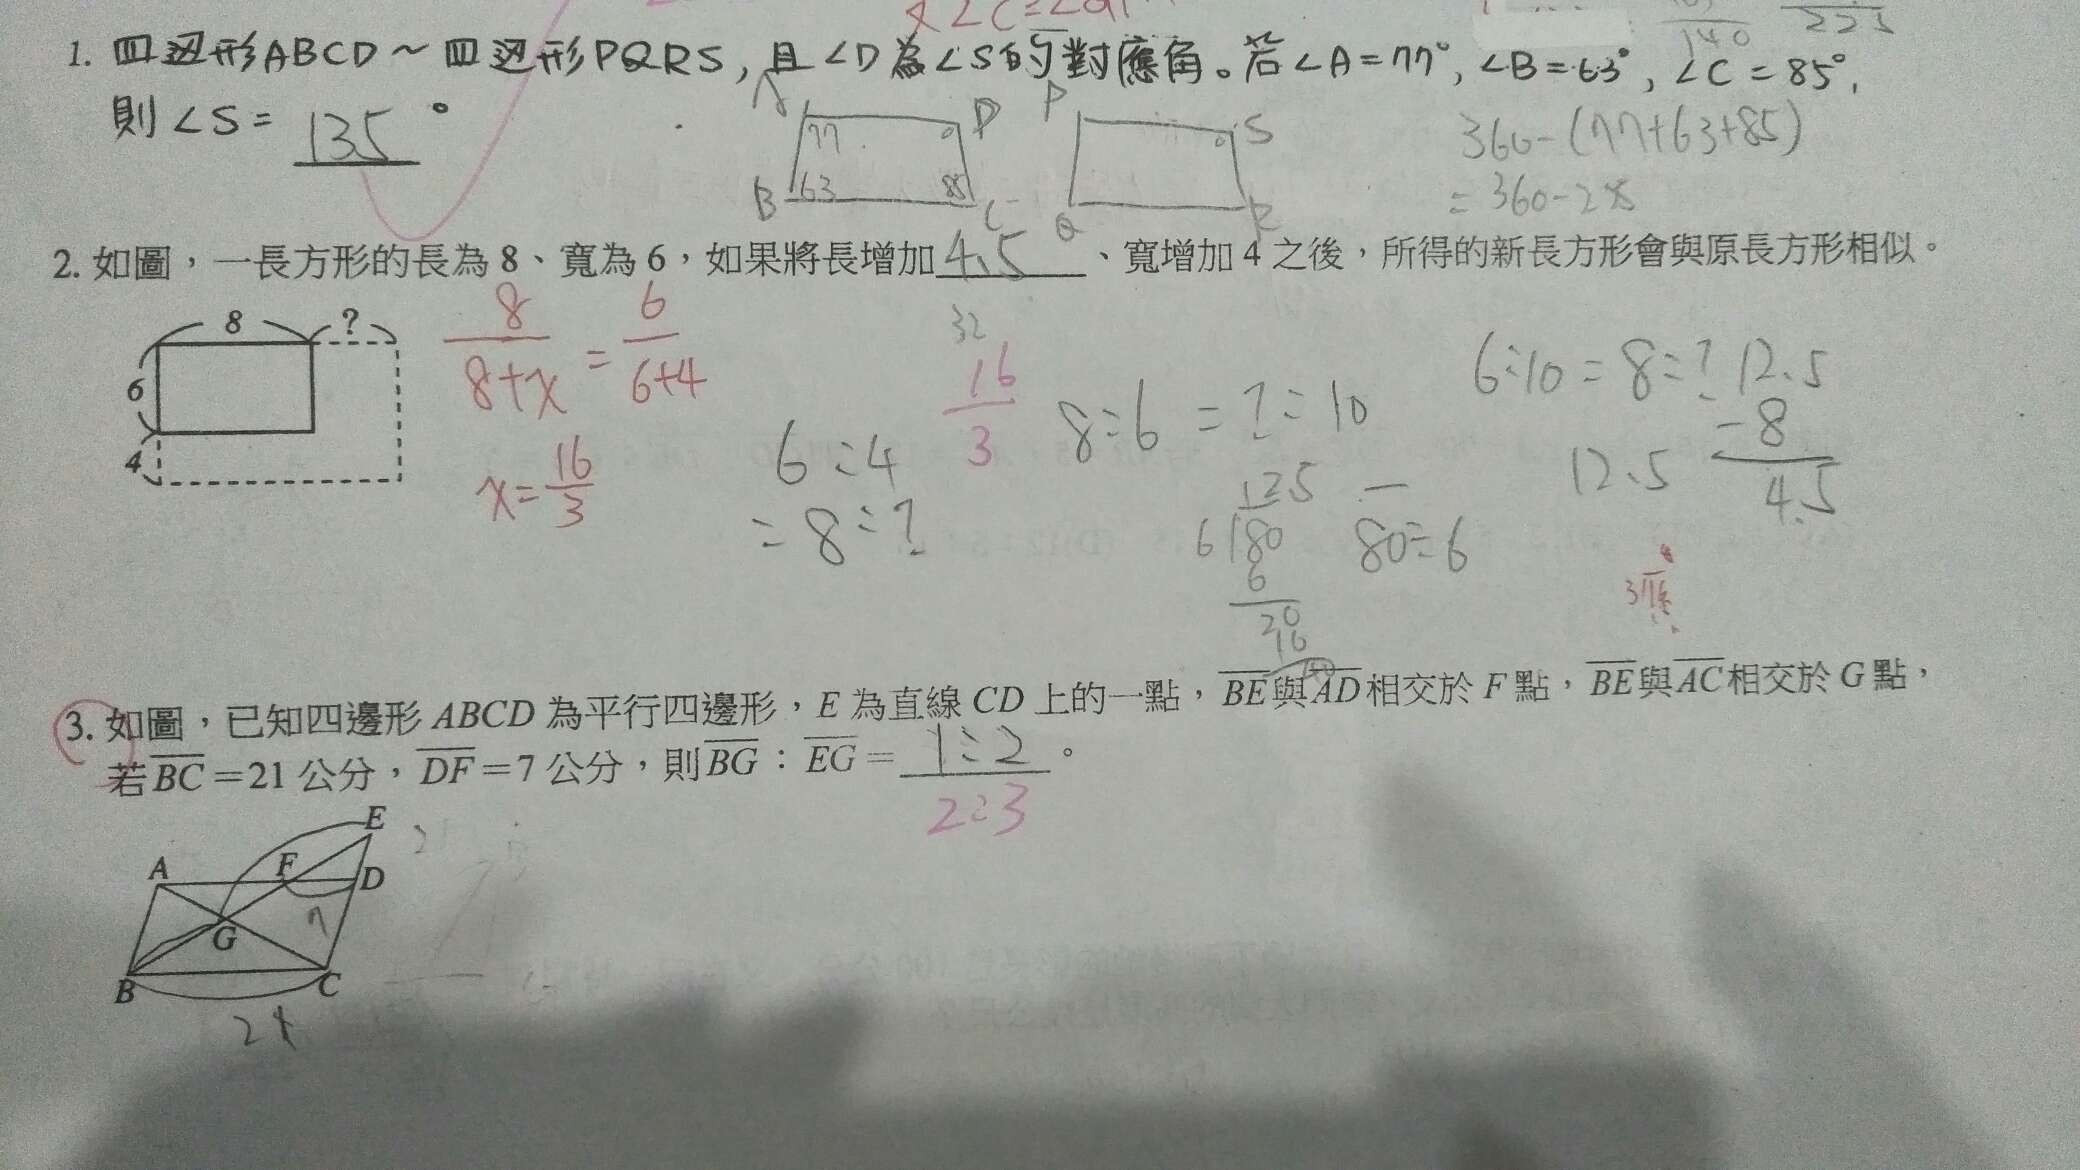 140
225
1. 四边形ABCD～四边形PQRS, 且∠D為∠S的對應角。若∠A=77°, ∠B=63°, ∠C=85°,
則∠S= 135 °
A 77 D
B 63 85 C
P S
Q R
360-(77+63+85)
=360-225
2. 如圖，一長方形的長為 8、寬為 6，如果將長增加 4.5 、寬增加 4 之後，所得的新長方形會與原長方形相似。
8 ?
6
4
8/8+x = 6/6+4
x=16/3
32
16/3
6:4
=8:?
8:6=?:10
6:10=8:?
12.5
12.5
-8
4.5
125
6 180
6
20
16
80÷6
3. 如圖，已知四邊形 ABCD 為平行四邊形，E 為直線 CD 上的一點，BE與AD相交於 F 點，BE與AC相交於 G 點，
若BC=21 公分，DF=7 公分，則BG：EG= 1:2 。
2:3
E
A F D
7
G
B C
21